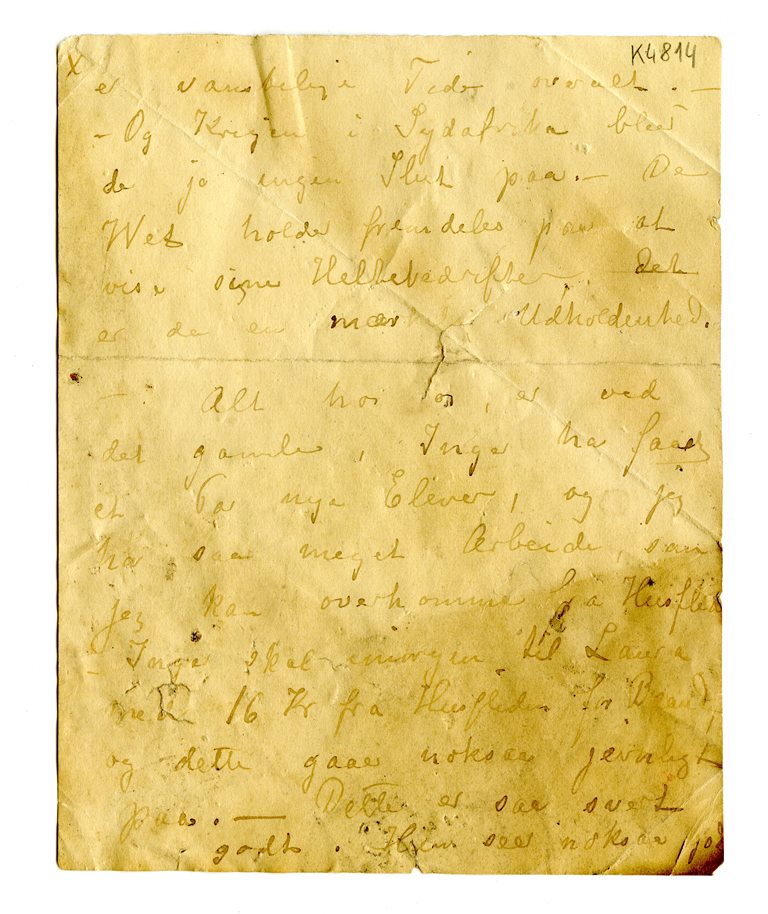 K4814
x
er vanskelige Tider overalt. —
- Og Krigen i Sydafrika bleer
de jo ingen Slut paa. — De
Wet holder fremdeles paa at
vise sine Heltebedrifter, det
er da en mær Udholdenhed.
— Alt hos os, er ved
det gamle, Inga ha faaet
et Par nye Elever, og jeg
har saa meget Arbeide, som
jeg kan overkomme fra Husflid
- Inga skal imorgen til Laura
med 16 Kr fra Husfliden for
og dette gaar noksaa jevnligt
paa. — Dette er saa svert
godt. Hun seer noksaa